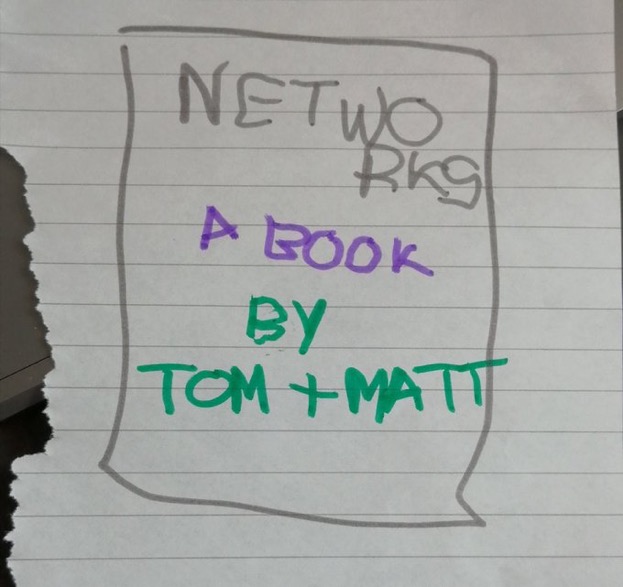 NETWO
RKS
A BOOK
BY
TOM + MATT